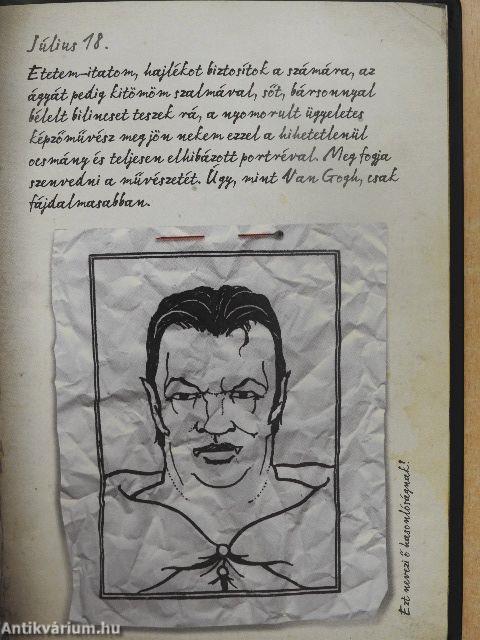 Július 18.
Etetem-itatom, hajlékot biztosítok a számára, az
ágyát pedig kitömöm szalmával, sőt, bársonnyal
bélelt bilincset teszek rá, a nyomorult ügyeletes
képzőművész meg jön nekem ezzel a hihetetlenül
ocsmány és teljesen elhibázott portréval. Meg fogja
szenvedni a művészetét. Úgy, mint Van Gogh, csak
fájdalmasabban.
Ezt nevezi ő hasonlóságnak?
Antikvárium.hu